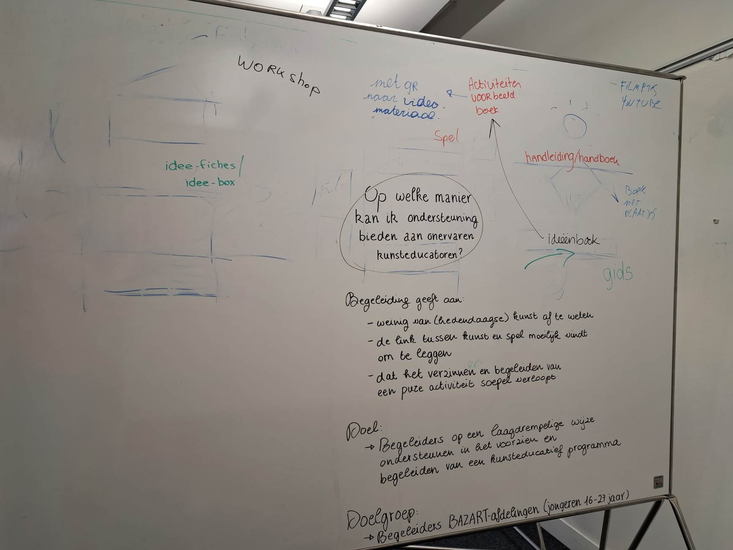 WORKshop
met QR
naar video
materiaal.
Activiteiten
VOORbeeld
boek
FILMPJE
YOUTUBE
Spel
idee-fiches/
idee-box
handleiding/handboek
Boek
MET
Op welke manier
kan ik ondersteuning
bieden aan onervaren
kunsteducatoren?
ideeënboek
gids
Begeleiding geeft aan:
- weinig van (hedendaagse) kunst af te weten
- de link tussen kunst en spel moeilijk vindt
om te leggen
- dat het verzinnen en begeleiden van
een pure activiteit soepel verloopt
Doel:
→ Begeleiders op een laagdrempelige wijze
ondersteunen in het voorzien en
begeleiden van een kunsteducatief programma
Doelgroep:
→ Begeleiders BAZART-afdelingen (jongeren 16-27 jaar)